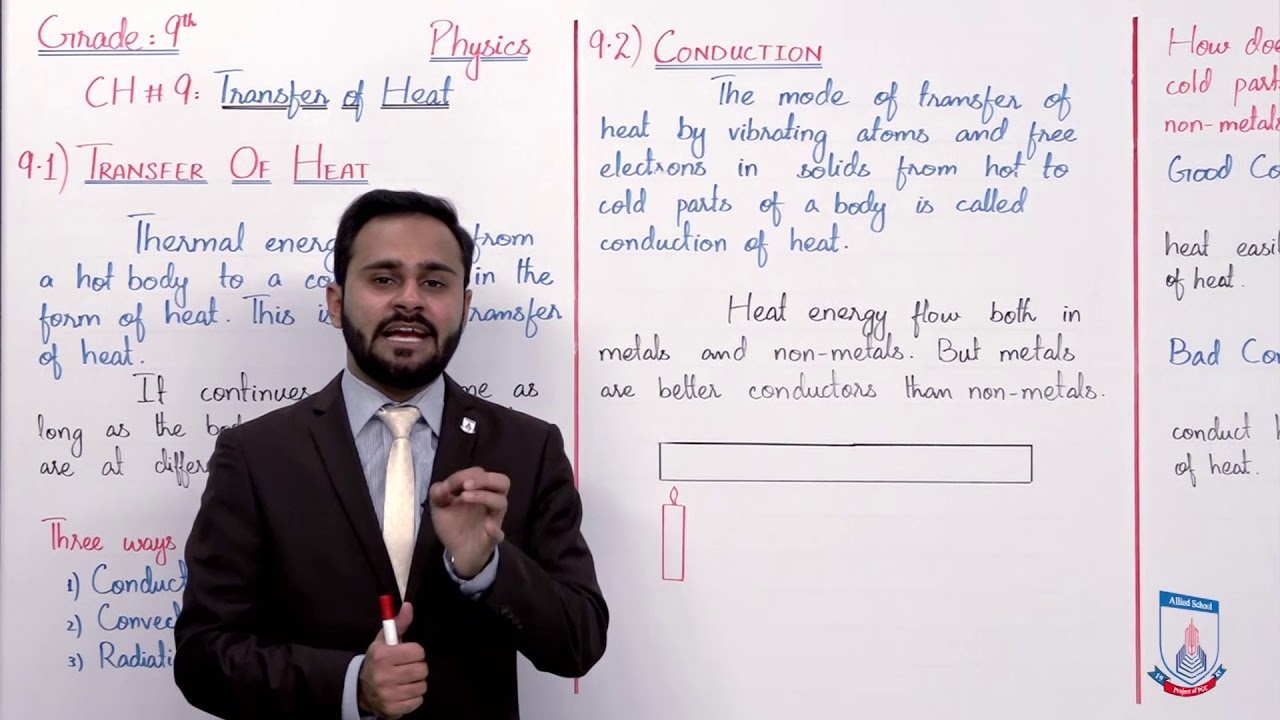 Grade: 9th
Physics
CH # 9: Transfer of Heat
9.1) TRANSFER OF HEAT
Thermal energ from
a hot body to a co in the
form of heat. This is transfer
of heat.
It continues me as
long as the bo
are at differ
Three ways
1) Conduct
2) Convec
3) Radiati
9.2) CONDUCTION
The mode of transfer of
heat by vibrating atoms and free
electrons in solids from hot to
cold parts of a body is called
conduction of heat.
Heat energy flow both in
metals and non-metals. But metals
are better conductors than non-metals.
How doe
cold part
non-metals
Good Co
heat easil
of heat.
Bad Con
conduct h
of heat.
Allied School
Project of PGC